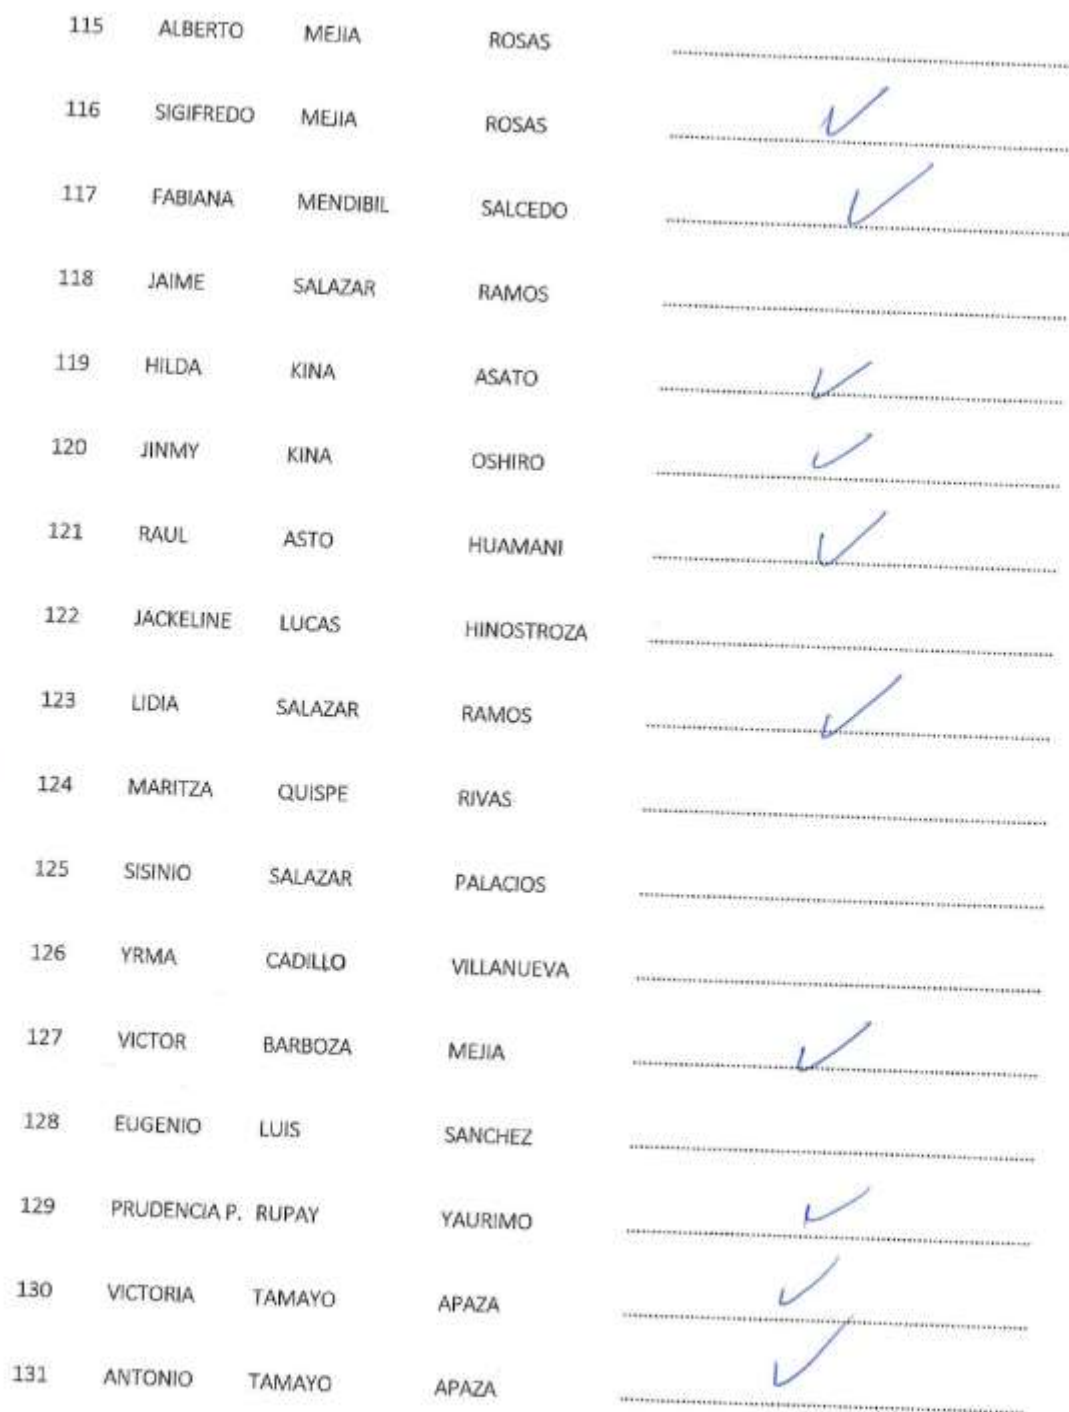 115 ALBERTO MEJIA ROSAS
116 SIGIFREDO MEJIA ROSAS
117 FABIANA MENDIBIL SALCEDO
118 JAIME SALAZAR RAMOS
119 HILDA KINA ASATO
120 JINMY KINA OSHIRO
121 RAUL ASTO HUAMANI
122 JACKELINE LUCAS HINOSTROZA
123 LIDIA SALAZAR RAMOS
124 MARITZA QUISPE RIVAS
125 SISINIO SALAZAR PALACIOS
126 YRMA CADILLO VILLANUEVA
127 VICTOR BARBOZA MEJIA
128 EUGENIO LUIS SANCHEZ
129 PRUDENCIA P. RUPAY YAURIMO
130 VICTORIA TAMAYO APAZA
131 ANTONIO TAMAYO APAZA